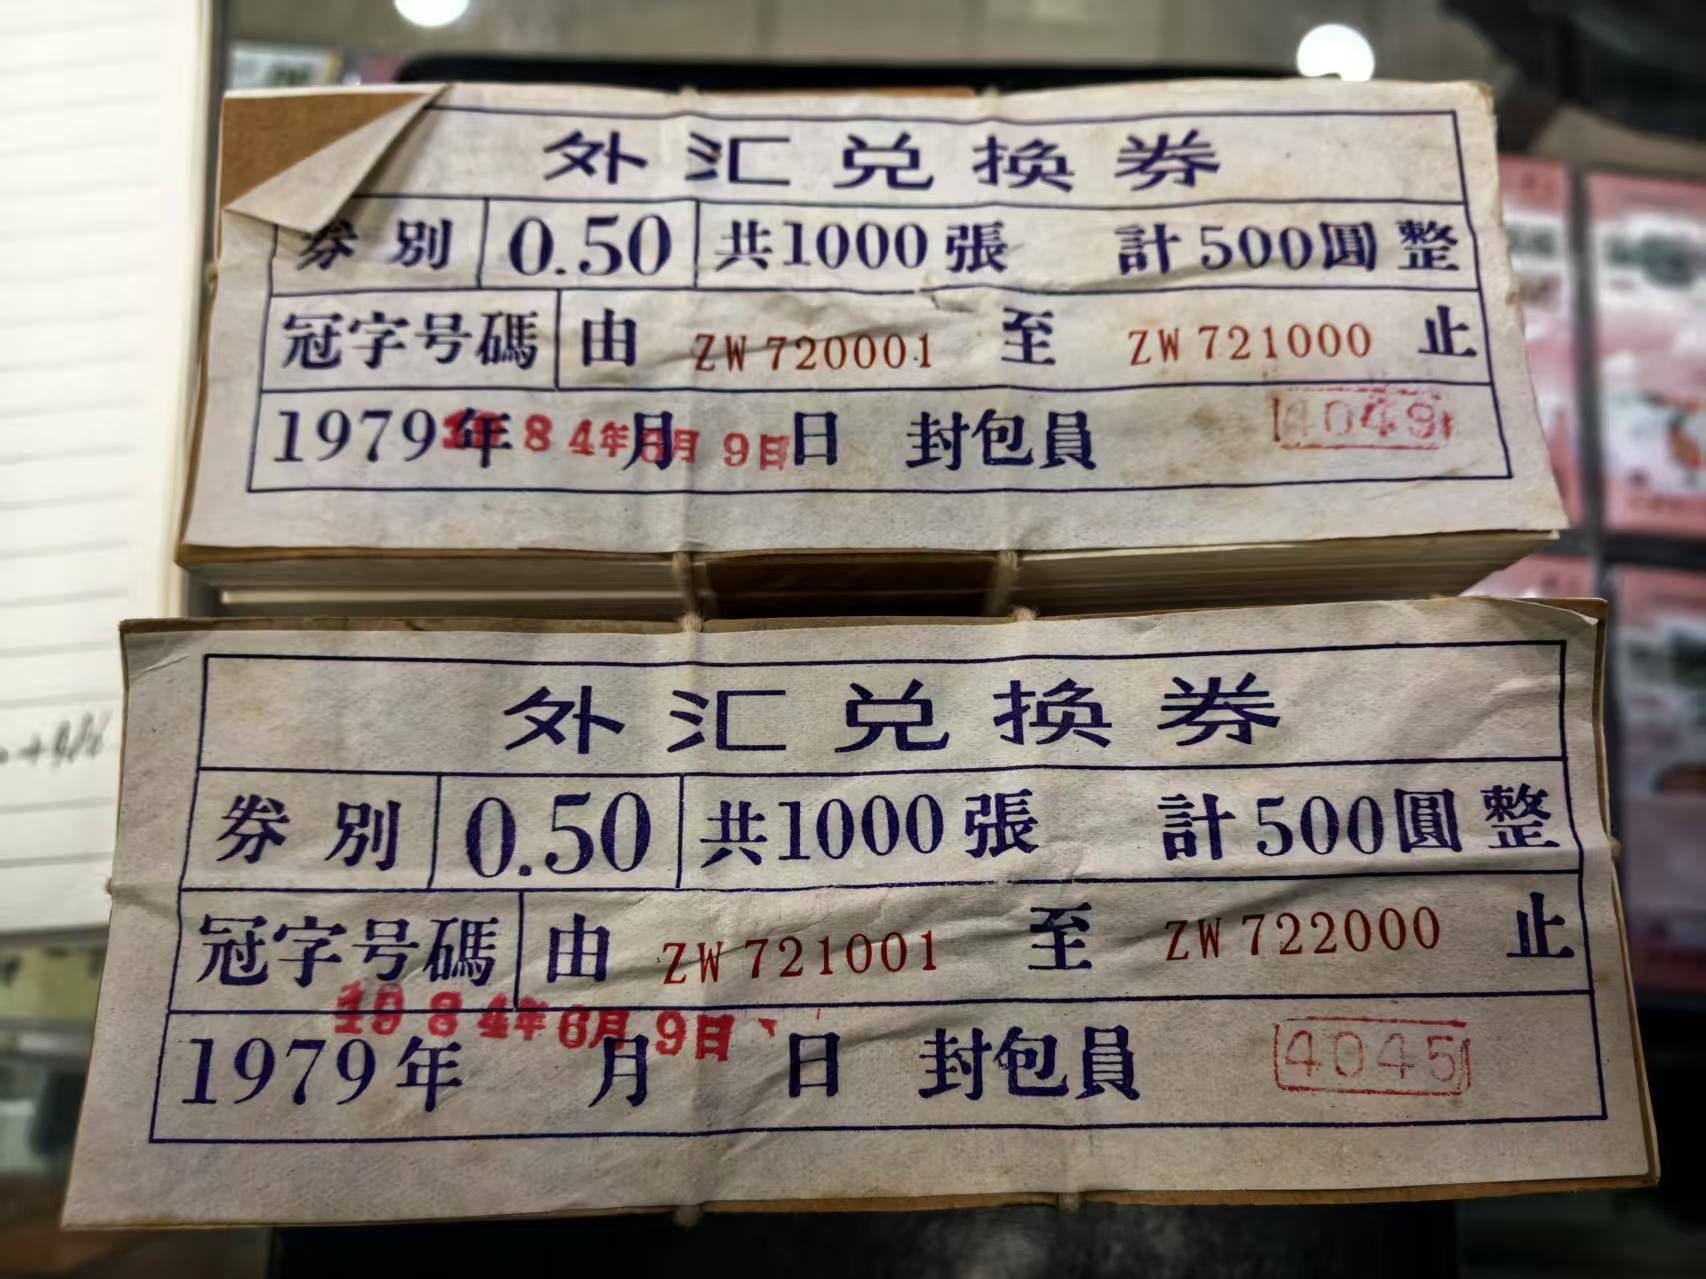 外汇兑换券
券別 0.50 共1000張 計500圓整
冠字号碼 由 ZW 720001 至 ZW 721000 止
1979年 月 日 封包員 4049
1984年6月9日
外汇兑换券
券別 0.50 共1000張 計500圓整
冠字号碼 由 ZW 721001 至 ZW 722000 止
1984年6月9日
1979年 月 日 封包員 4045